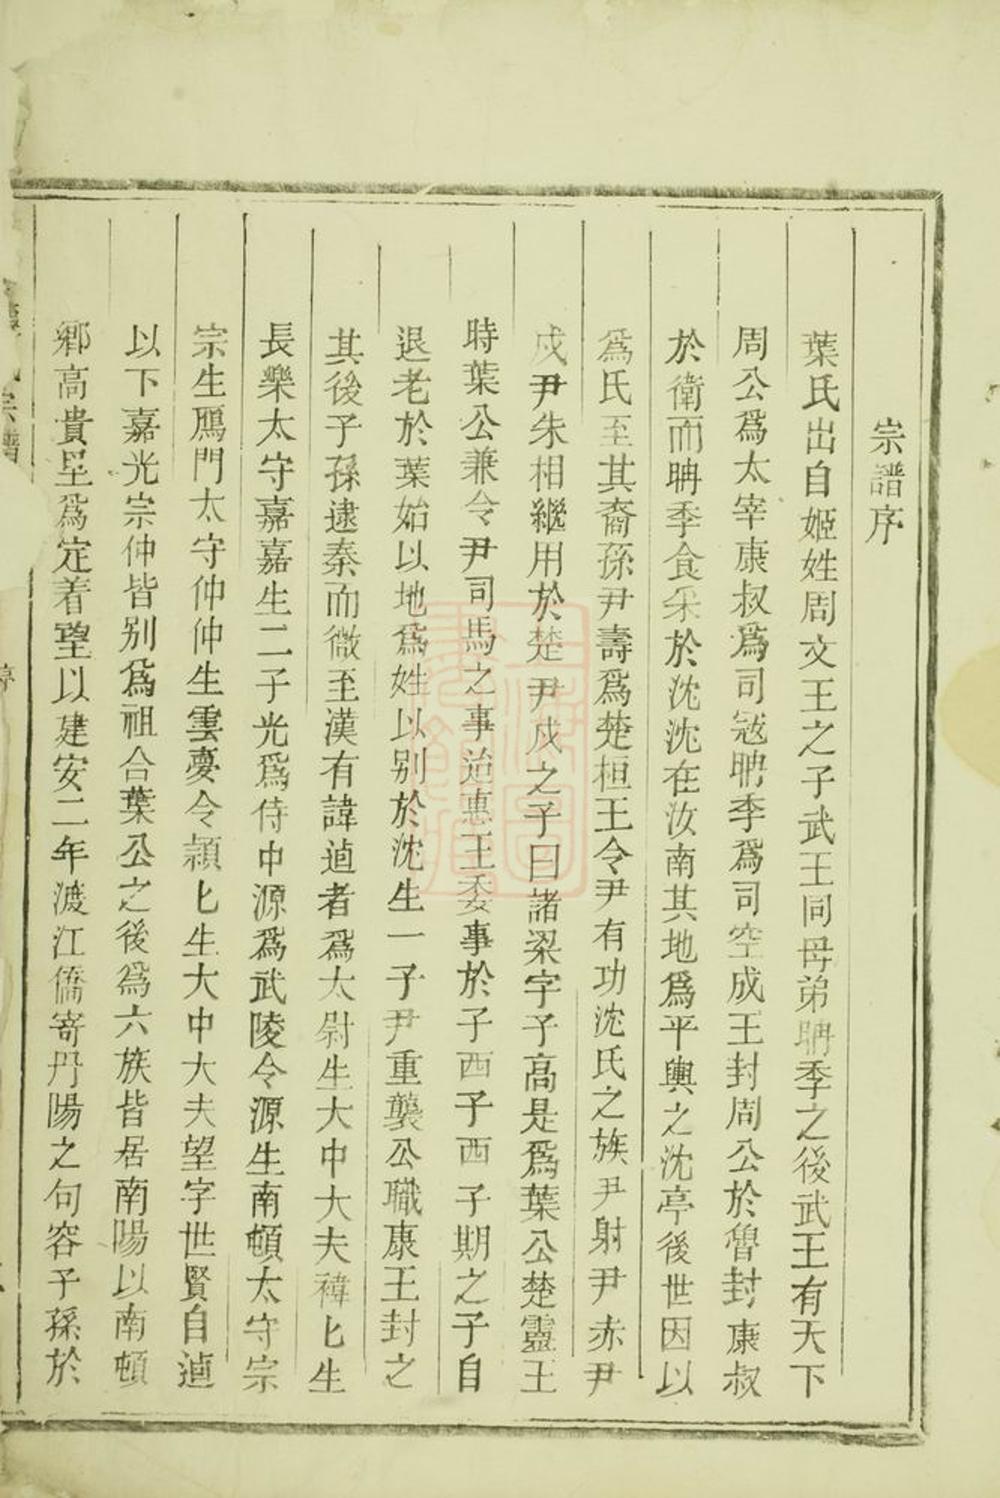 宗譜序
葉氏出自姬姓周文王之子武王同母弟聃季之後武王有天下
周公爲太宰康叔爲司寇聃季爲司空成王封周公於魯封康叔
於衛而聃季食采於沈沈在汝南其地爲平輿之沈亭後世因以
爲氏至其裔孫尹壽爲楚桓王令尹有功沈氏之族尹射尹赤尹
戍尹朱相繼用於楚尹戍之子曰諸梁字子高是爲葉公楚靈王
時葉公兼令尹司馬之事迨惠王委事於子西子西子期之子自
退老於葉始以地爲姓以别於沈生一子尹重襲公職康王封之
其後子孫逮秦而微至漢有諱逌者爲太尉生大中大夫褘匕生
長樂太守嘉嘉生二子光爲侍中源爲武陵令源生南頓太守宗
宗生鴈門太守仲仲生雲夢令頴匕生大中大夫望字世賢自逌
以下嘉光宗仲皆别爲祖合葉公之後爲六族皆居南陽以南頓
鄉高貴里爲定着望以建安二年渡江僑寄丹陽之句容子孫於
宗譜
序